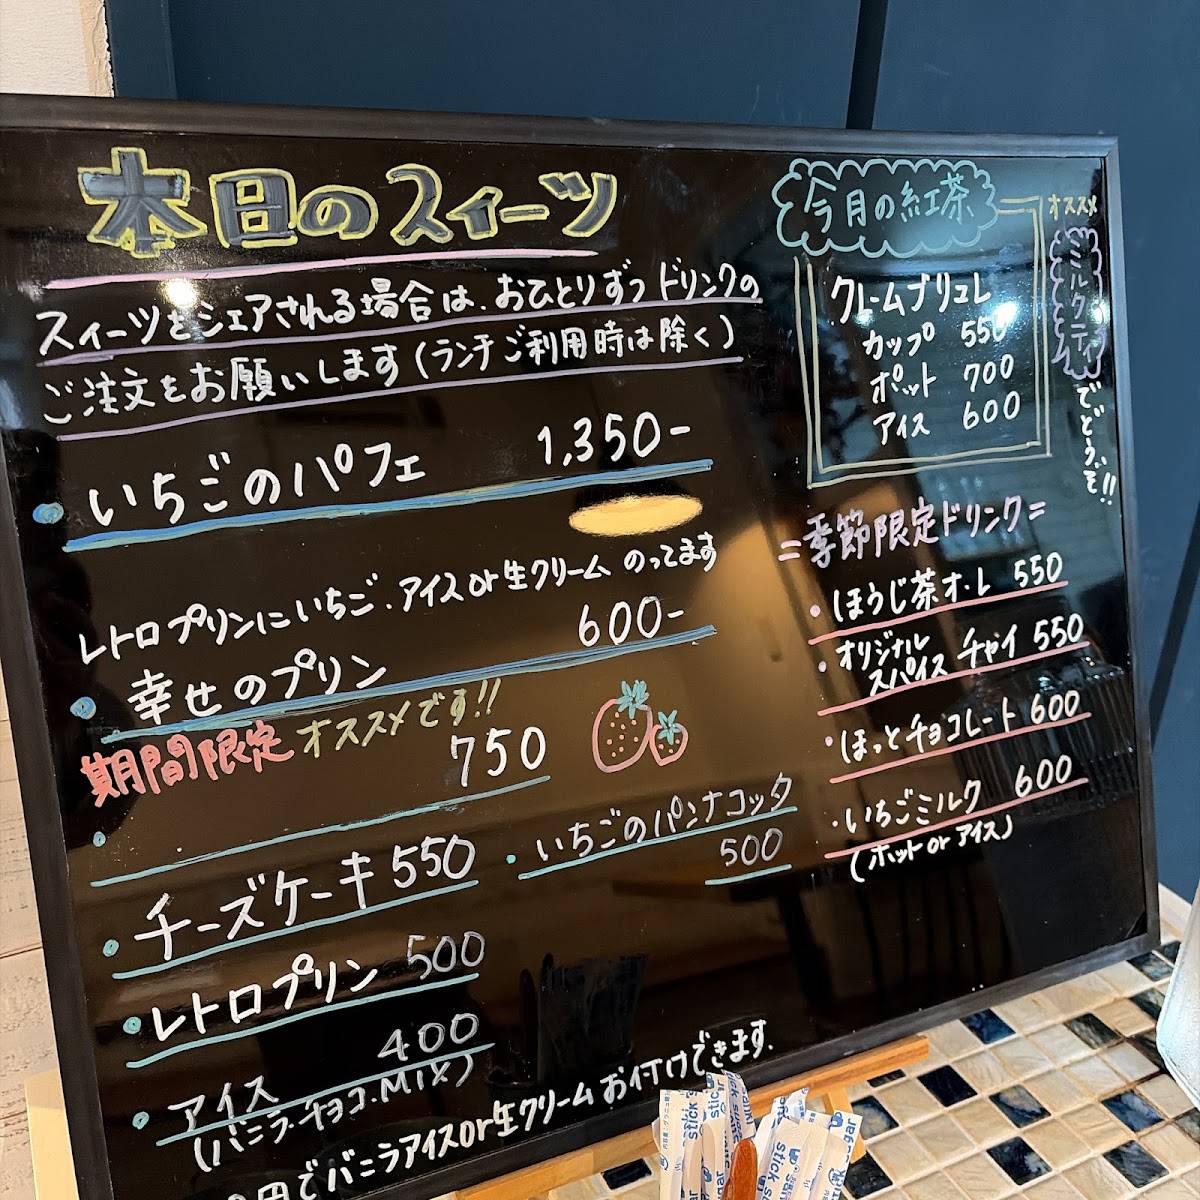 本日のスィーツ
スィーツをシェアされる場合は、おひとりずつ ドリンクの
ご注文をお願いします(ランチご利用時は除く)
・いちごのパフェ 1,350-
レトロプリンにいちご、アイスor生クリーム のってます
・幸せのプリン 600-
期間限定 オススメです!!
750
・チーズケーキ 550
・レトロプリン 500
・アイス 400
(バニラ・チョコ・MIX)
円でバニラアイスor生クリームお付けできます.
・いちごのパンナコッタ
500
今月の紅茶
クレームブリュレ
カップ 550
ポット 700
アイス 600
オススメ
ミルクティ
でどうぞ!!
=季節限定ドリンク=
・ほうじ茶オ・レ 550
・オリジナル
スパイス チャイ 550
・ほっとチョコレート 600
・いちごミルク 600
(ホット or アイス)
stick sugar